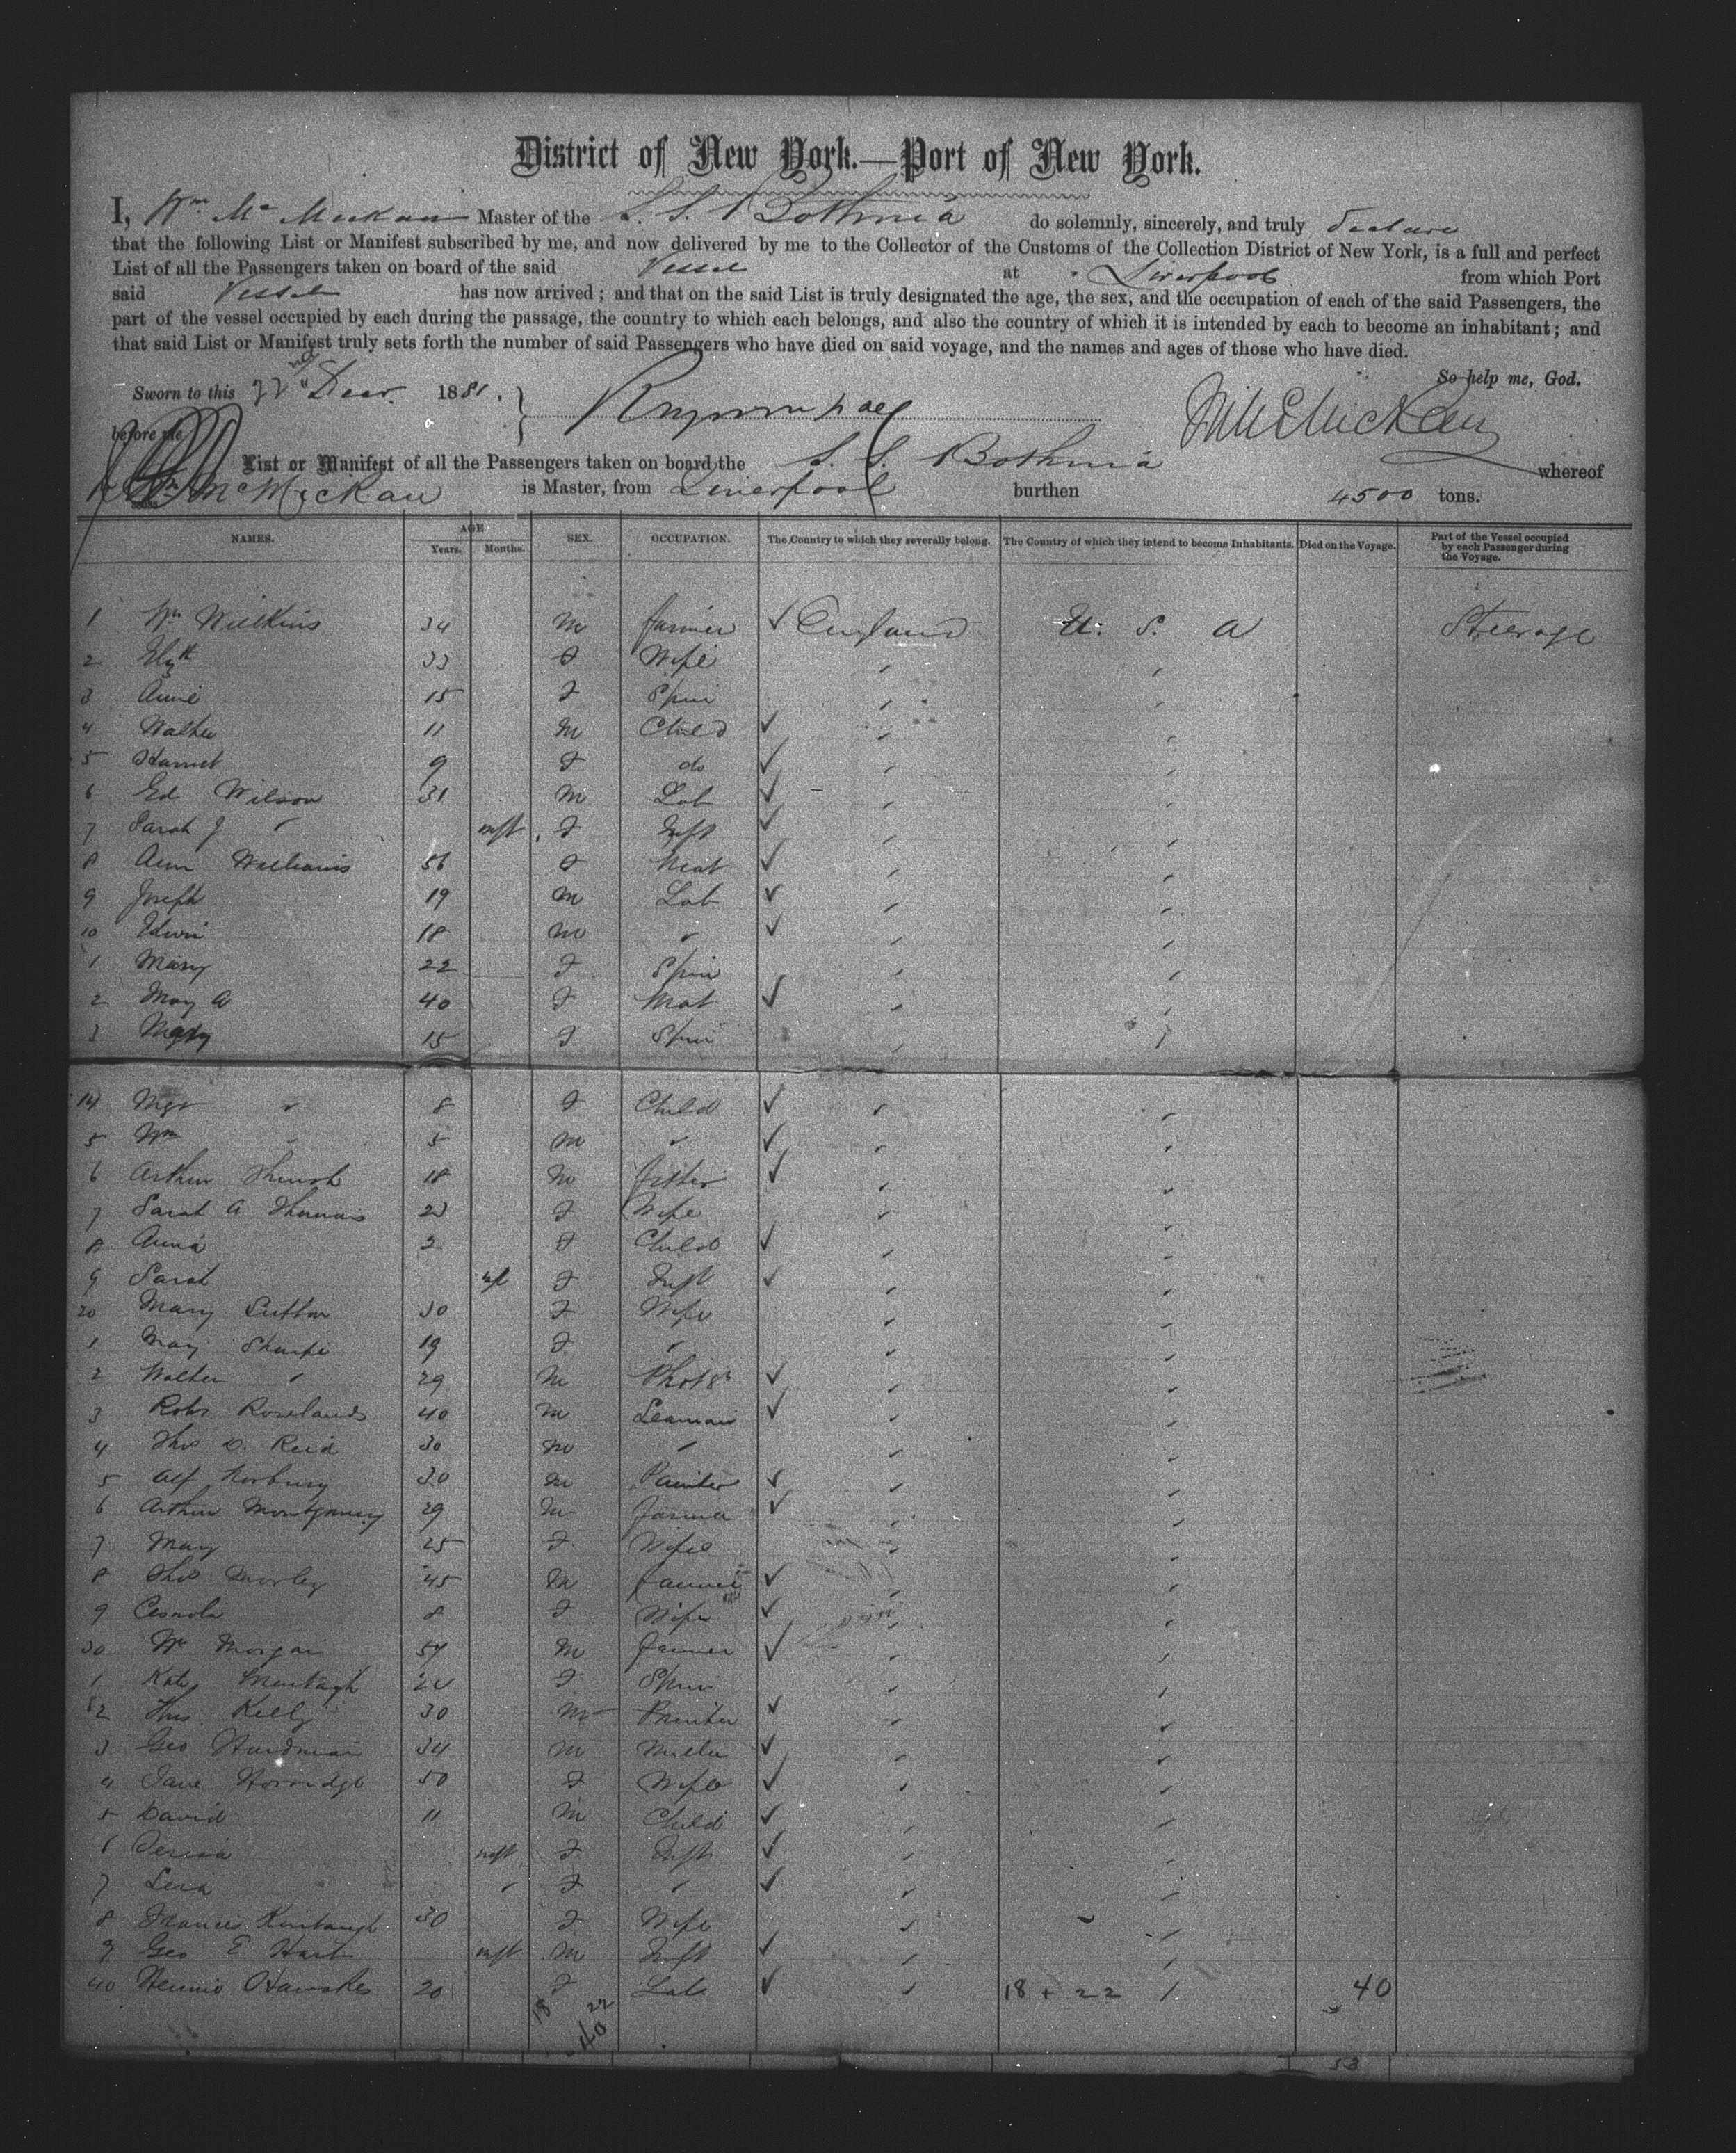 District of New York.—Port of New York.
I, Wm McMickan Master of the S. S. Bothnia do solemnly, sincerely, and truly declare
that the following List or Manifest subscribed by me, and now delivered by me to the Collector of the Customs of the Collection District of New York, is a full and perfect
List of all the Passengers taken on board of the said Vessel at Liverpool from which Port
said Vessel has now arrived; and that on the said List is truly designated the age, the sex, and the occupation of each of the said Passengers, the
part of the vessel occupied by each during the passage, the country to which each belongs, and also the country of which it is intended by each to become an inhabitant; and
that said List or Manifest truly sets forth the number of said Passengers who have died on said voyage, and the names and ages of those who have died.
So help me, God.
Sworn to this 22nd Decr. 1881.
before me
W McMickan
List or Manifest of all the Passengers taken on board the S. S. Bothnia whereof
Wm McMickan is Master, from Liverpool burthen 4500 tons.
NAMES. AGE Years. Months. SEX. OCCUPATION. The Country to which they severally belong. The Country of which they intend to become Inhabitants. Died on the Voyage. Part of the Vessel occupied by each Passenger during the Voyage.
1 Wm Wilkins 34 M Farmer England U. S. A Steerage
2 Elizth 33 F Wife
3 Annie 15 F Spin
4 Walter 11 M Child
5 Harriet 9 F do
6 Ed Wilson 31 M Lab
7 Sarah J " inft F Inft
8 Ann Williams 56 F Mat
9 Joseph 19 M Lab
10 Edwin 18 M "
1 Mary 22 F Spin
2 Mary A 40 F Mat
3 Mary 15 F Spin
14 Mgt " 8 F Child
5 Wm " 5 M "
6 Arthur 18 M
7 Sarah A Thomas 23 F Wife
8 Anna 2 F Child
9 Sarah inft F Inft
20 Mary Sutton 30 F Wife
1 Mary Sharpe 19 F "
2 Walter " 29 M Photgr
3 Robt Roselands 40 M Seaman
4 Thos D. Reid 30 M "
5 Alf Norbury 30 M Painter
6 Arthur Montgomery 29 M Farmer
7 Mary 25 F Wife
8 Thos Morley 45 M Farmer
9 8 F Wife
30 Wm Morgan 57 M Farmer
1 Kate Murtagh 20 F Spin
2 Thos Kelly 30 M Painter
3 Geo Hardman 34 M Miller
4 Jane Horridge 50 F Wife
5 David 11 M Child
6 inft F Inft
7 " F "
8 Frances 30 F Wife
9 Geo E Hart inft M Inft
40 Hawkes 20 F Lab 18 + 22 40
18 22
40
53